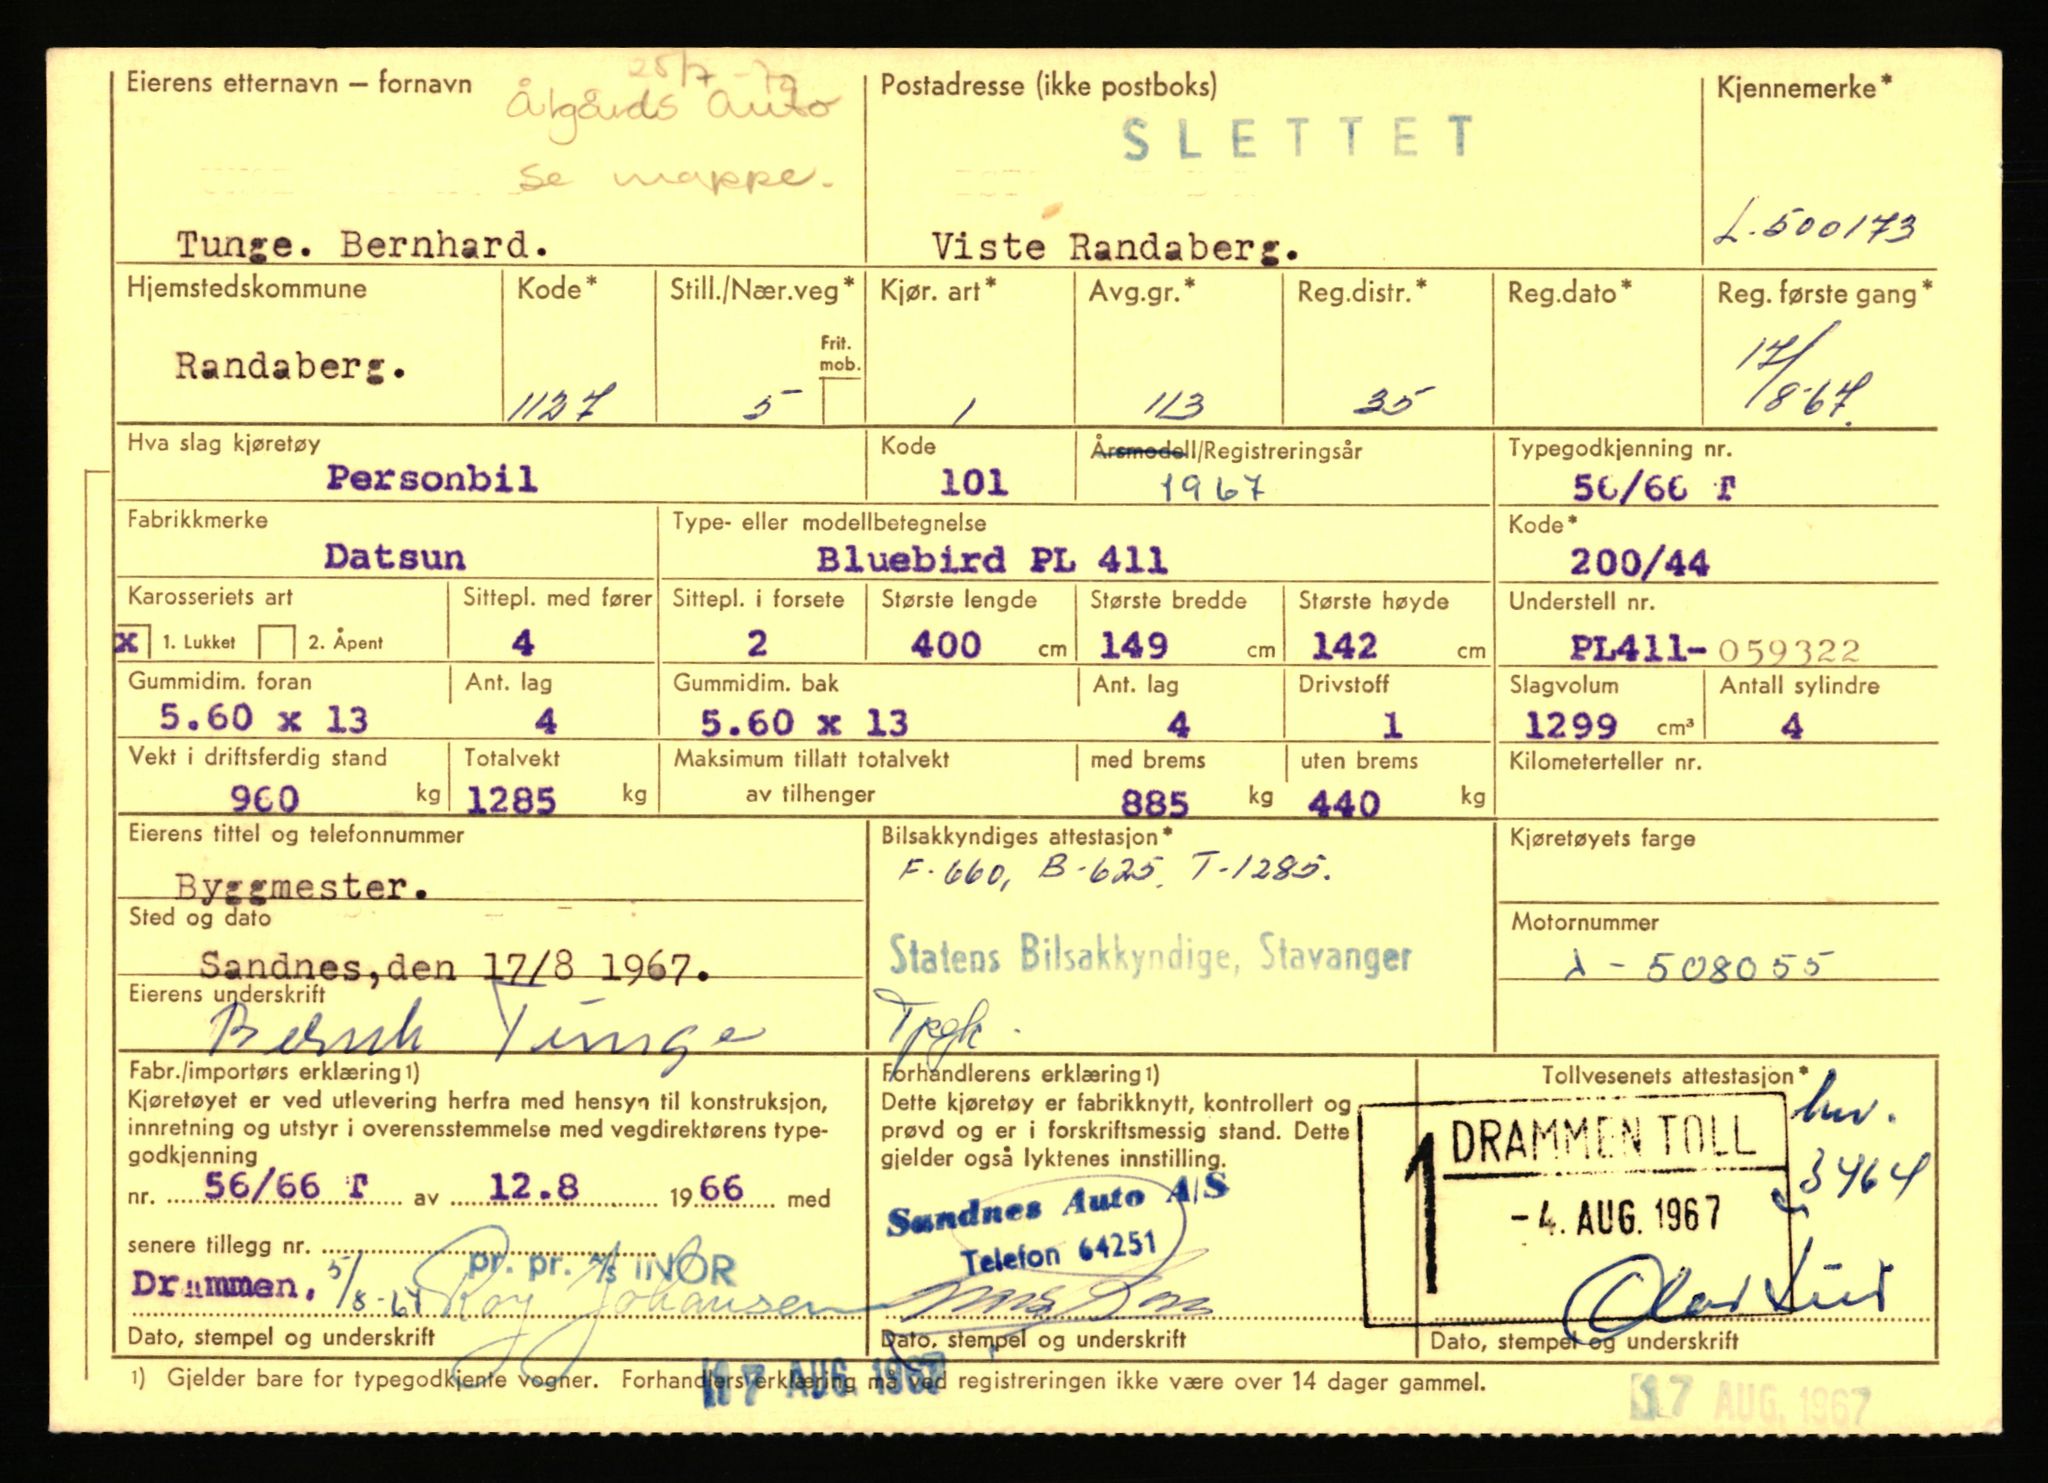 Eierens etternavn – fornavn
25/7 -79
Ålgårds Auto
se mappe.
Tunge. Bernhard.
Postadresse (ikke postboks)
SLETTET
Viste Randaberg.
Kjennemerke*
L-500173
Hjemstedskommune
Randaberg.
Kode*
1127
Still./Nær.veg*
5
Frit.
mob.
Kjør. art*
1
Avg.gr.*
113
Reg.distr.*
35
Reg.dato*
Reg. første gang*
17/
/8-67.
Hva slag kjøretøy
Personbil
Kode
101
Årsmodell/Registreringsår
1967
Typegodkjenning nr.
56/66 T
Fabrikkmerke
Datsun
Type- eller modellbetegnelse
Bluebird PL 411
Kode*
200/44
Karosseriets art
x 1. Lukket 2. Åpent
Sittepl. med fører
4
Sittepl. i forsete
2
Største lengde
400 cm
Største bredde
149 cm
Største høyde
142 cm
Understell nr.
PL411-059322
Gummidim. foran
5.60 x 13
Ant. lag
4
Gummidim. bak
5.60 x 13
Ant. lag
4
Drivstoff
1
Slagvolum
1299 cm³
Antall sylindre
4
Vekt i driftsferdig stand
960 kg
Totalvekt
1285 kg
Maksimum tillatt totalvekt
av tilhenger
med brems
885 kg
uten brems
440 kg
Kilometerteller nr.
Eierens tittel og telefonnummer
Byggmester.
Bilsakkyndiges attestasjon*
F-660, B-625, T-1285.
Statens Bilsakkyndige, Stavanger
Tpgk.
Kjøretøyets farge
Sted og dato
Sandnes,den 17/8 1967.
Motornummer
J-508055
Eierens underskrift
Bernh Tunge
Fabr./importørs erklæring 1)
Kjøretøyet er ved utlevering herfra med hensyn til konstruksjon,
innretning og utstyr i overensstemmelse med vegdirektørens type-
godkjenning
nr. 56/66 T av 12.8 1966 med
senere tillegg nr.
pr. pr. A/S INOR
Drammen, 5/8-67 Roy Johansen
Dato, stempel og underskrift
Forhandlerens erklæring 1)
Dette kjøretøy er fabrikknytt, kontrollert og
prøvd og er i forskriftsmessig stand. Dette
gjelder også lyktenes innstilling.
Sandnes Auto A/S
Telefon 64251
Dato, stempel og underskrift
Tollvesenets attestasjon*
1 DRAMMEN TOLL
-4. AUG. 1967
3464
Dato, stempel og underskrift
1) Gjelder bare for typegodkjente vogner. Forhandlers erklæring må ved registreringen ikke være over 14 dager gammel.
17 AUG. 1967
17 AUG. 1967